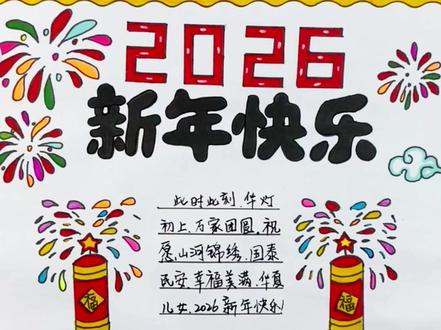 2026
新年快乐
此时此刻,华灯
初上,万家团圆,祝
愿,山河锦绣,国泰
民安,幸福美满,华夏
儿女,2026新年快乐!
福
福